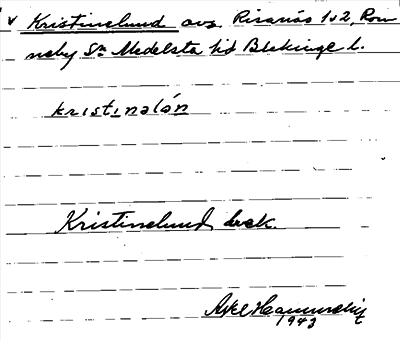 v Kristinelund avs. Risanäs 1 o 2, Ron-
neby Sn Medelsta hd Blekinge l.
kristinəlón
Kristinelund bek.
Axel
1943